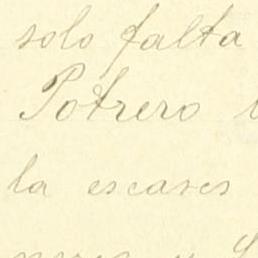 solo falta
Potrero
la escases